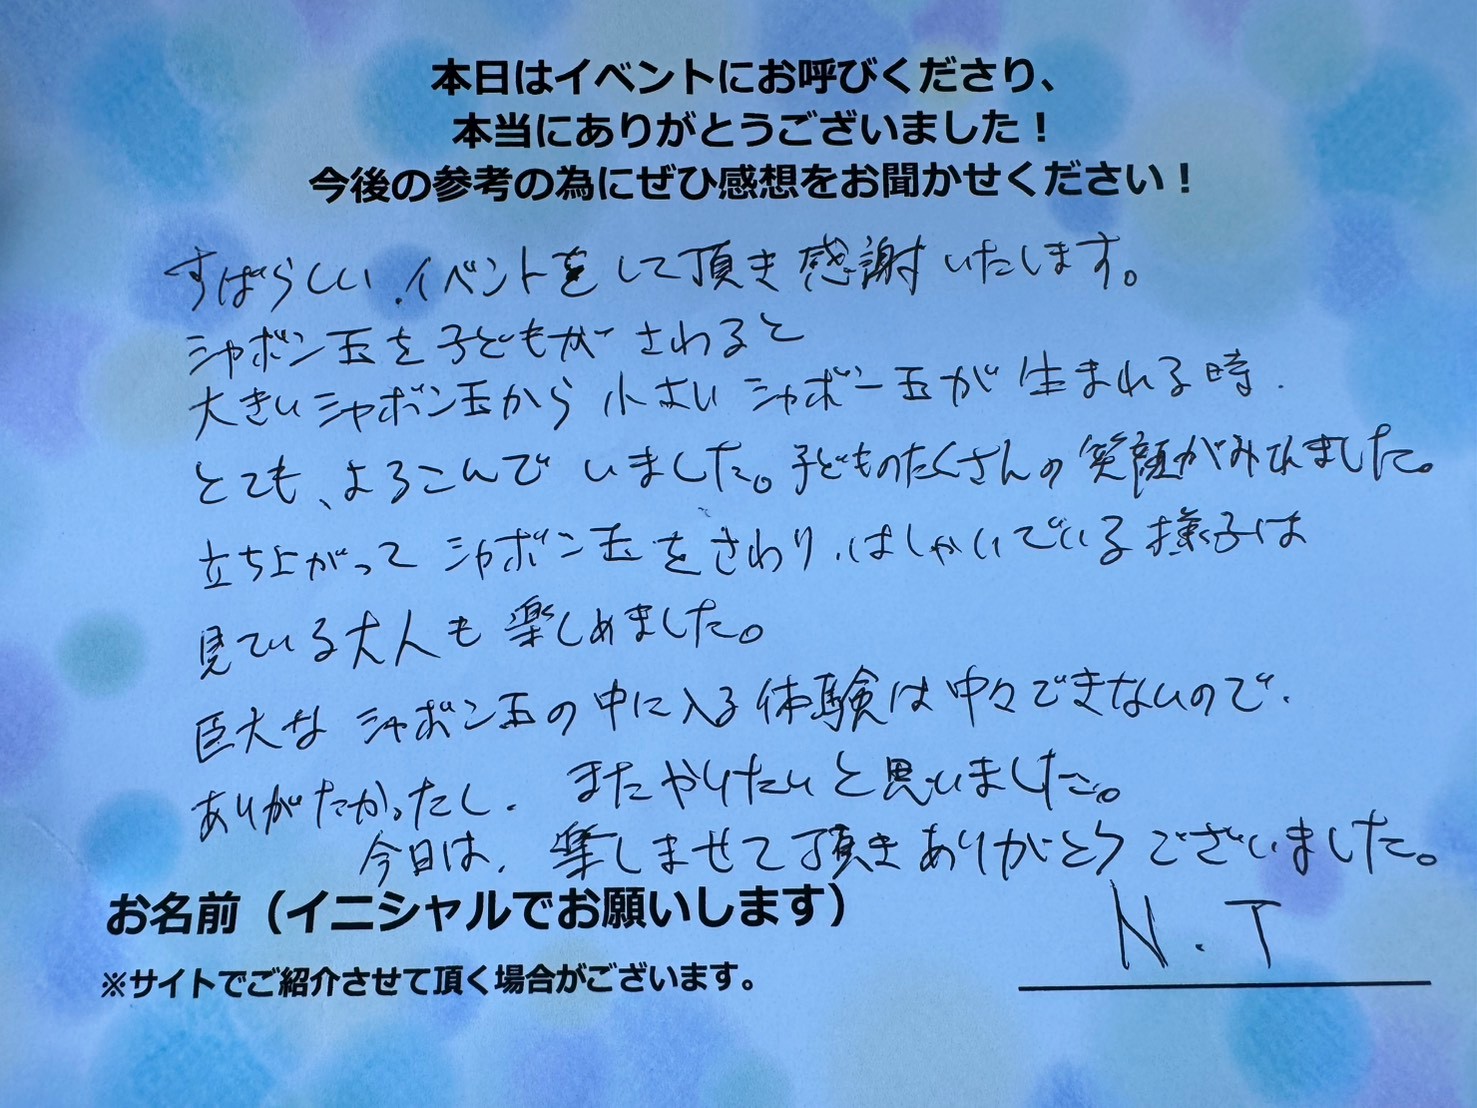 本日はイベントにお呼びくださり、
本当にありがとうございました！
今後の参考の為にぜひ感想をお聞かせください！
すばらしい、イベントをして頂き感謝いたします。
シャボン玉を子どもがさわると
大きいシャボン玉から小さいシャボン玉が生まれる時、
とても、よろこんでいました。子どものたくさんの笑顔がみれました。
立ち上がってシャボン玉をさわり、はしゃいでいる様子は
見ている大人も楽しめました。
巨大なシャボン玉の中に入る体験は中々できないので、
ありがたかったし、またやりたいと思いました。
今日は、楽しませて頂きありがとうございました。
お名前（イニシャルでお願いします）
N.T
※サイトでご紹介させて頂く場合がございます。